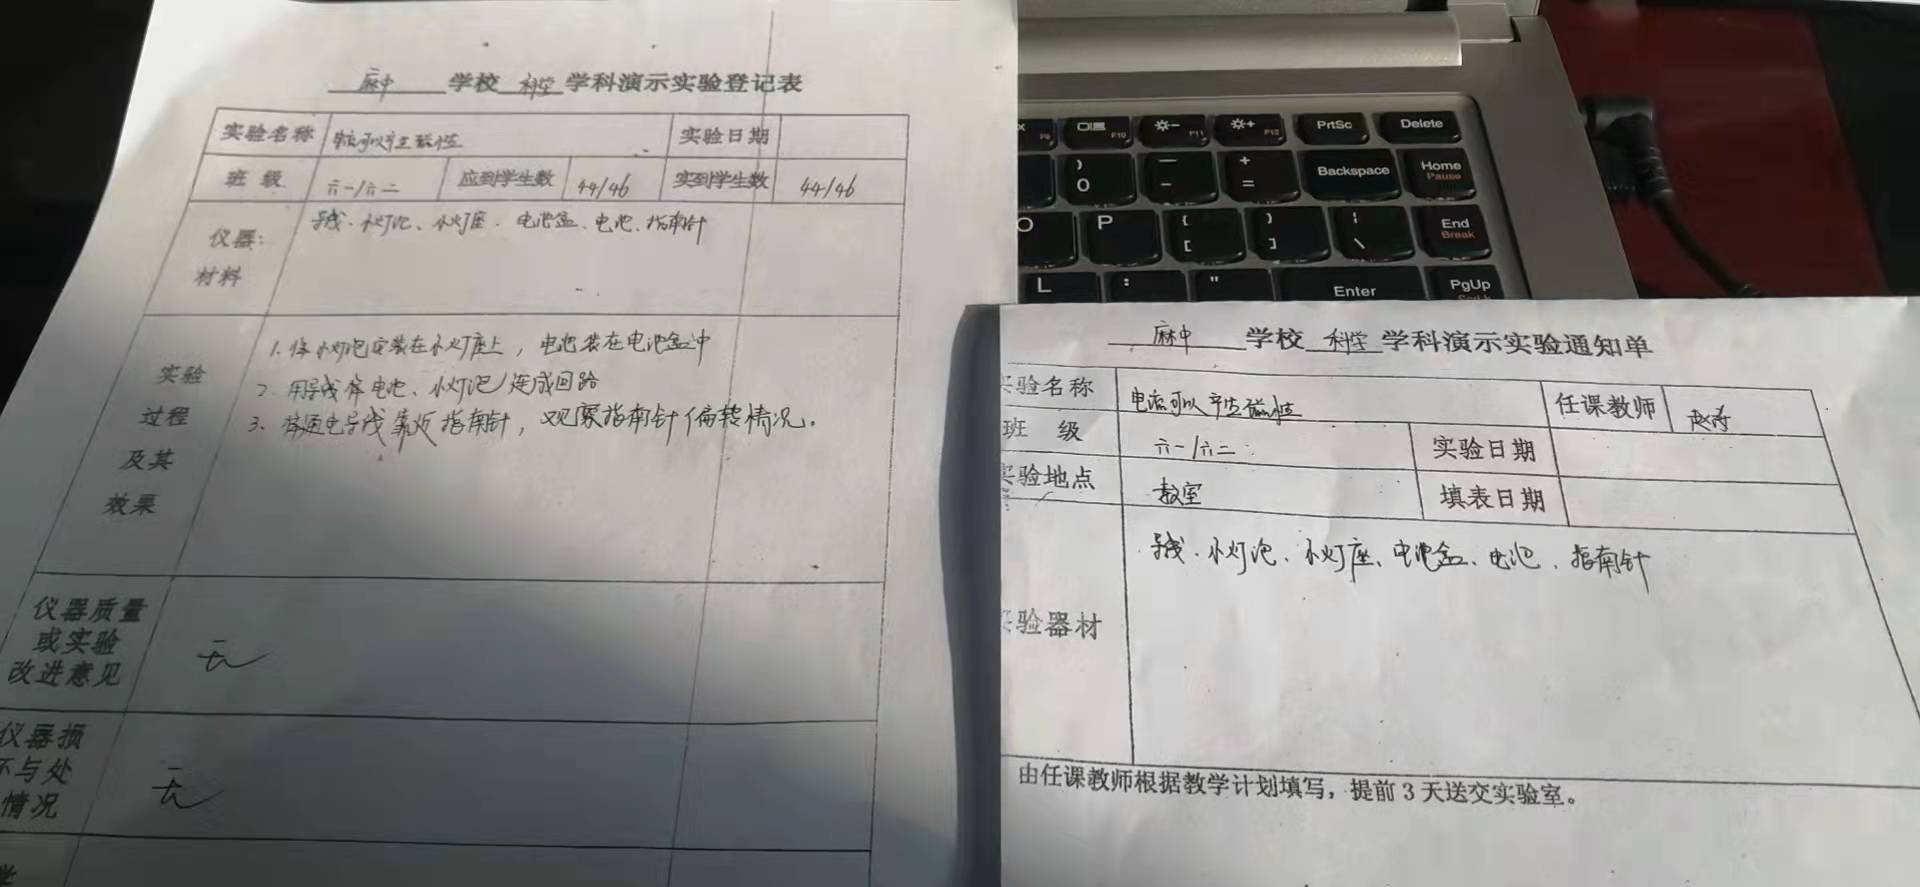 麻中 学校 科学 学科演示实验登记表
实验名称 电流可以产生磁性 实验日期
班 级 六一/六二 应到学生数 44/46 实到学生数 44/46
仪器:
材料
导线、小灯泡、小灯座、电池盒、电池、指南针
实验
过程
及其
效果
1. 将小灯泡安装在小灯座上，电池装在电池盒中
2. 用导线将电池、小灯泡连成回路
3. 将通电导线靠近指南针，观察指南针偏转情况。
仪器质量
或实验
改进意见
无
仪器损
坏与处
情况
无
麻中 学校 科学 学科演示实验通知单
实验名称 电流可以产生磁性 任课教师
班 级 六一/六二 实验日期
实验地点 教室 填表日期
实验器材
导线、小灯泡、小灯座、电池盒、电池、指南针
由任课教师根据教学计划填写，提前 3 天送交实验室。
F9 F10 F11 F12 PrtSc Delete
) 0 — - + = Backspace Home Pause
O P { [ } ] | \ End Break
L : " Enter PgUp